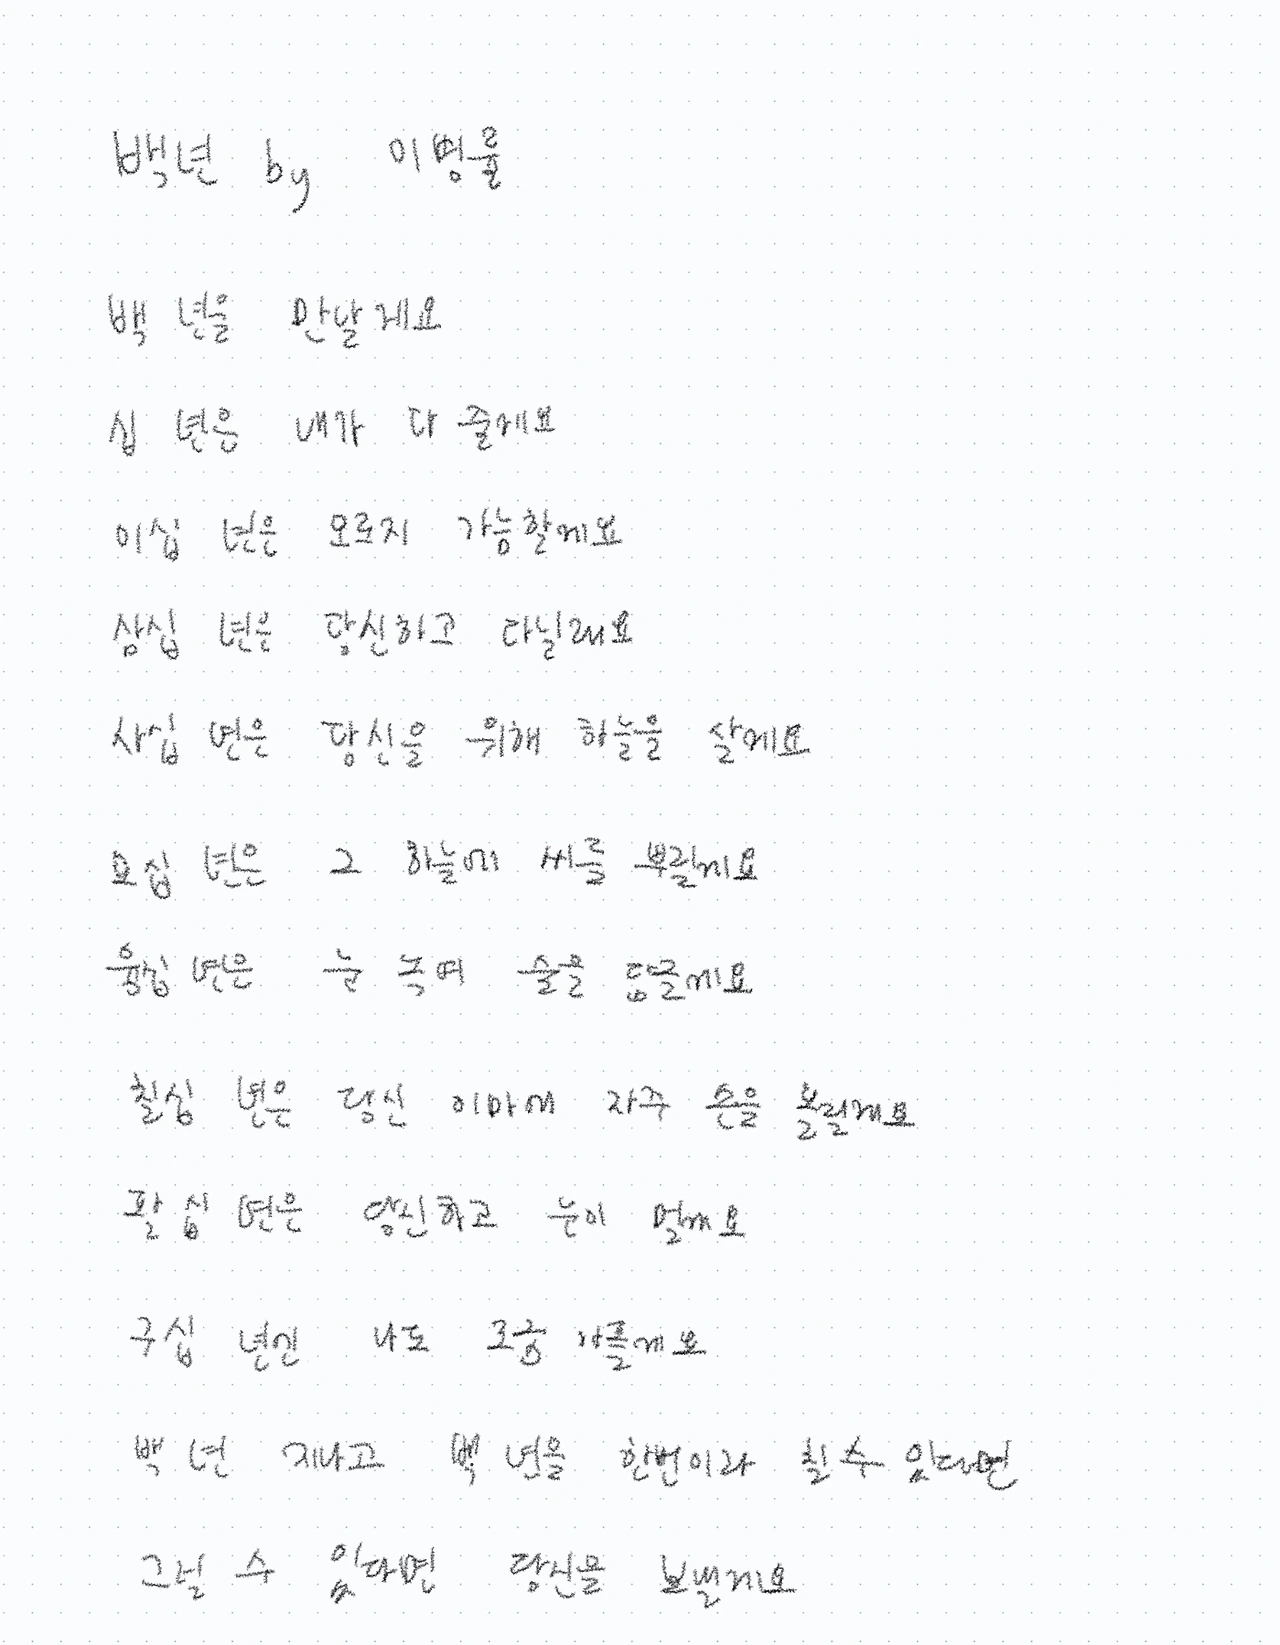 백년 by 이병률
백 년을 만날게요
십 년은 내가 다 줄게요
이십 년은 오로지 가늠할게요
삼십 년은 당신하고 다닐래요
사십 년은 당신을 위해 하늘을 살게요
오십 년은 그 하늘에 씨를 뿌릴게요
육십 년은 눈 녹여 술을 담글게요
칠십 년은 당신 이마에 자주 손을 올릴게요
팔십 년은 당신하고 눈이 멀게요
구십 년엔 나도 조금 아플게요
백 년 지나고 백 년을 한번이라 칠 수 있다면
그럴 수 있다면 당신을 보낼게요